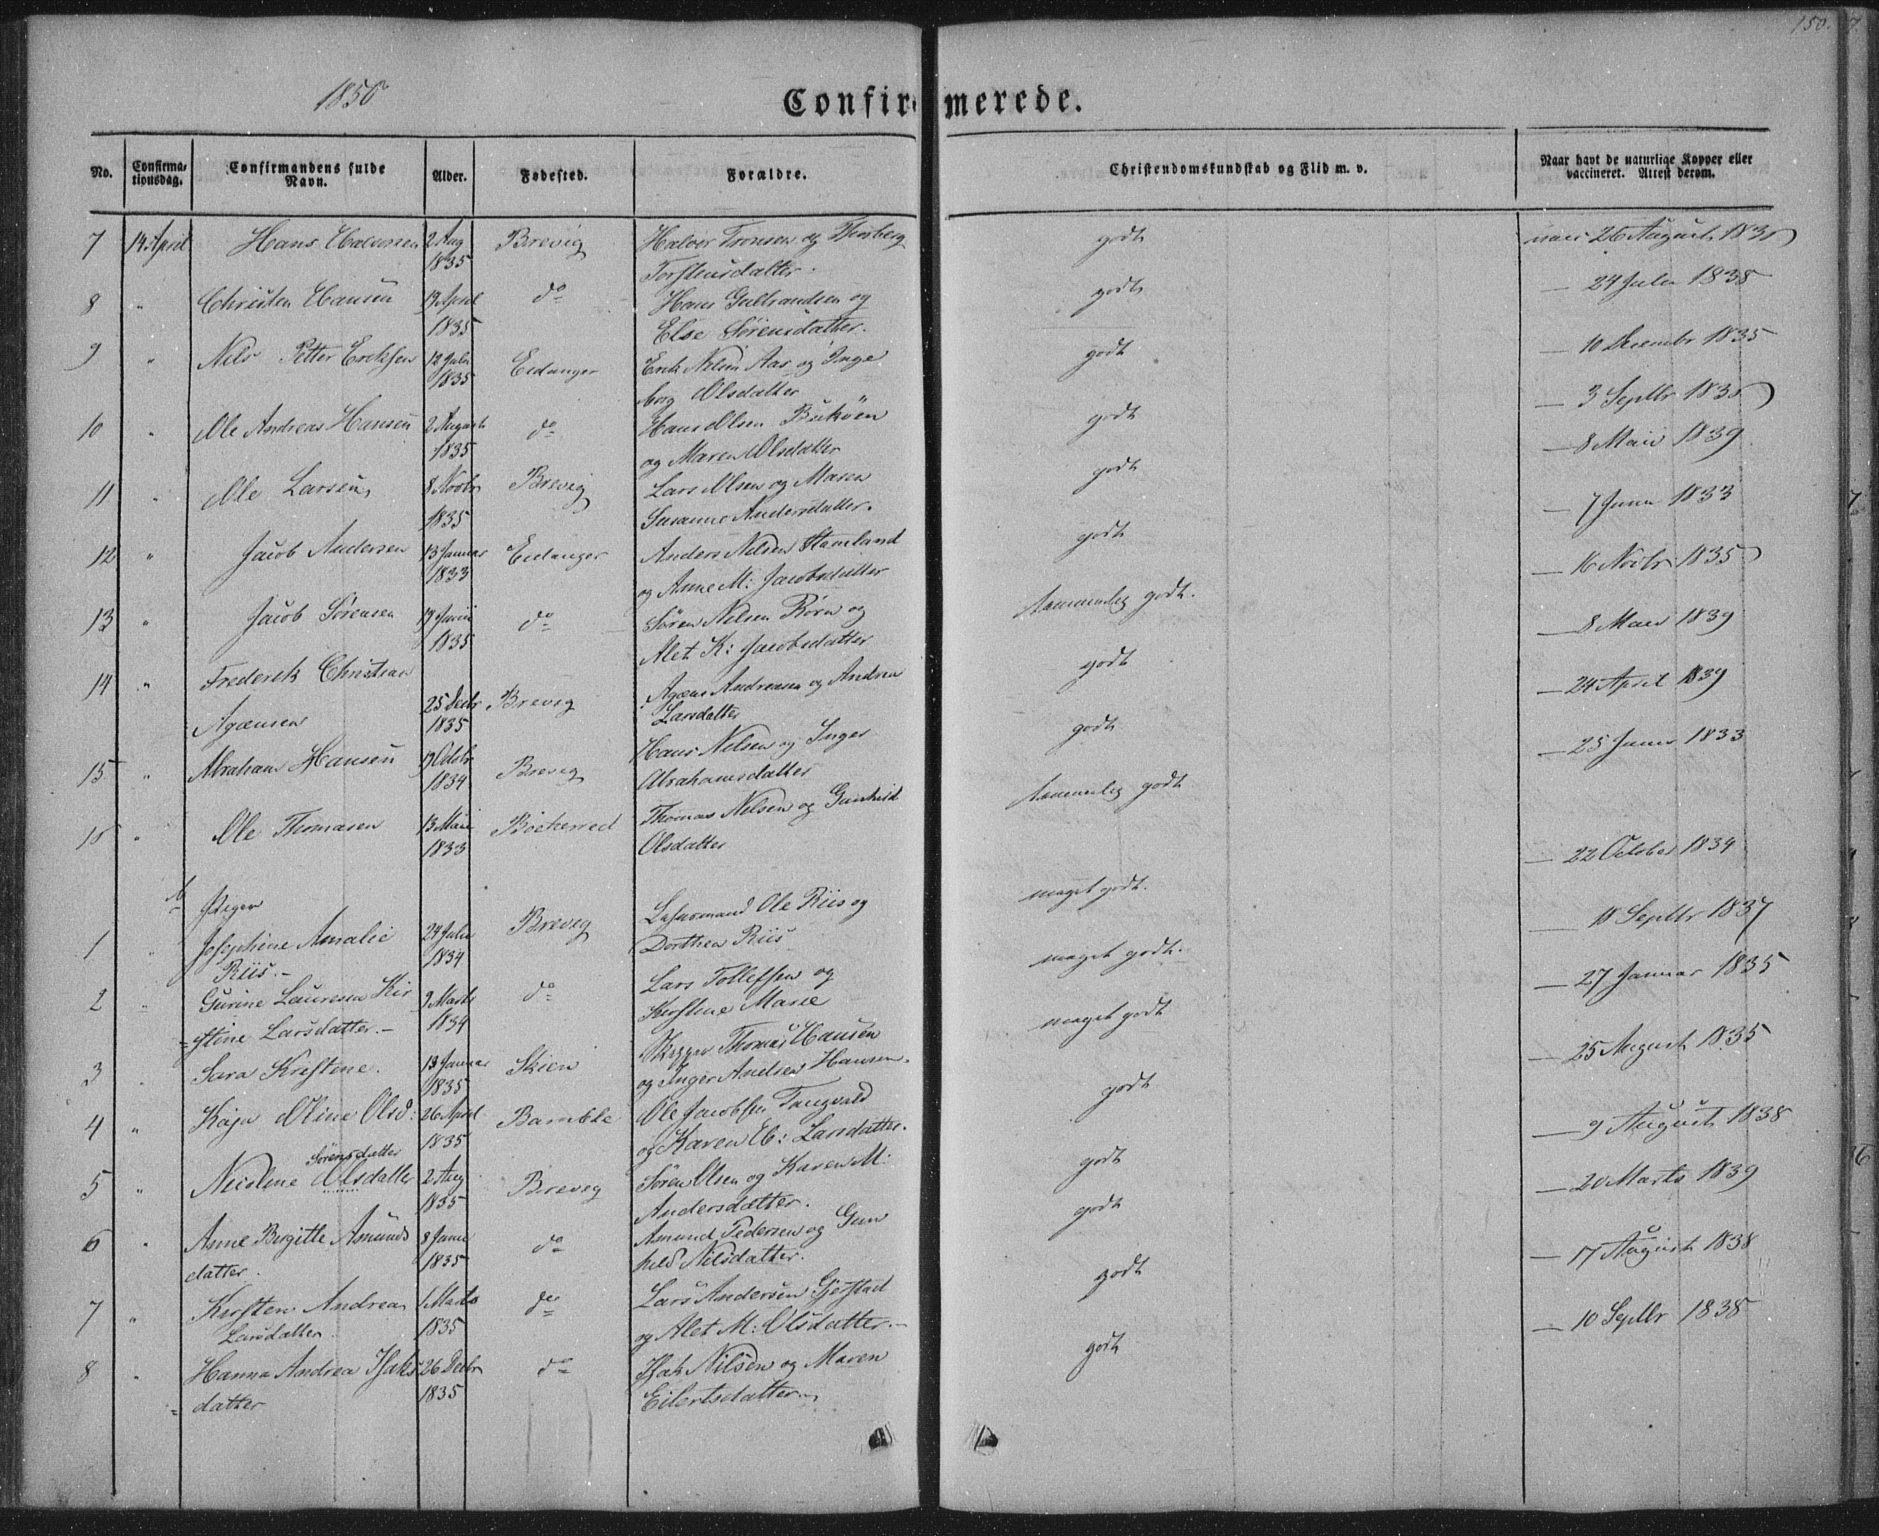 150.
1850
Confirmerede.
No.
Confirma-
tionsdag.
Confirmandens fulde
Navn.
Alder.
Fødested.
Forældre.
Christendomskundskab og Flid m. v.
Naar havt de naturlige Kopper eller
vaccineret. Attest derom.
7 14 April Hans Halvorsen 2 Aug Brevig Halvor Tronsen og Thorberg godt 26 August
1835 Torstensdatter.
8 " Christen Hansen 19 April do Hans Gulbrandsen og godt — 24 Julii 1838
1835 Else Sørensdatter.
9 " Nils Petter Ericksen 12 Julii Eidanger Erik Nilsen Aas og Inge godt — 10 Decembr 1835
1835 borg Olsdatter
10 " Ole Andreas Hansen 2 August do Hans Olsen godt — 3 Septbr
1835 og Maren Olsdatter
11 " Ole Larsen 8 Novbr Brevig Lars Olsen og Maren godt — 8 Maii 1839
1835 Susanne Andersdatter.
12 " Jacob Andersen 13 Januar Eidanger Anders Nilsen Stamland godt — 7 Junii 1833
1833 og Anne M: Jacobsdatter
13 " Jacob Sørensen 19 Junii do Søren Nilsen Rørn og temmelig godt. — 16 Novbr 1835
1835 Alet K: Jacobsdatter
14 " Frederik Christian Andreasen og Andrea godt — 8 Maii 1839
Agæusen 25 Decbr 1835 Brevig Larsdatter
15 " Abraham Hansen 19 Octobr Brevig Hans Nilsen og Inger godt — 24 April 1839
1834 Abrahamsdatter
" Ole Thomasen 13 Maii Thomas Nilsen og Gunhild temmelig godt — 25 Junii 1833
1833 Olsdatter
b Piger
1 " Josephine Amalie 24 Julii Brevig Ole Riis og maget godt. — 22 October 1834
Riis. 1834 Dorthea Riis
2 " Gurine Lauresea Kir 9 Marts do Lars Tollefsen og maget godt. — 18 Septbr 1837
stine Larsdatter. 1834 Kirstine Marie
3 " Sara Kristine. 13 Januar Skien Skipper Thomas Hansen maget godt — 27 Januar 1835
1835 og Inger Andrea Hansen.
4 " Kaja Oline Olsd: 26 April Bamble Ole Jacobsen Tangvald godt — 25 August 1835
1835 og Karen El: Larsdatter.
Sørensdatter
5 " Nicoline Olsdatter 2 Aug Brevig Søren Olsen og Karen M: godt — 9 August 1838
1835 Andersdatter.
6 " Anne Birgitte Amunds 8 Junii do Amund Pedersen og Gun godt — 20 Marts 1839
datter. 1835 hild Nilsdatter.
7 " Kirsten Andrea 1 Marts do Lars Andersen Gjerstad godt — 17 August 1838
Larsdatter. 1835 og Alet M: Olsdatter.
8 " Hanna Andrea Isaks 26 Decbr do Isak Nilsen og Maren godt — 10 Septbr 1838
datter 1835 Eilertsdatter